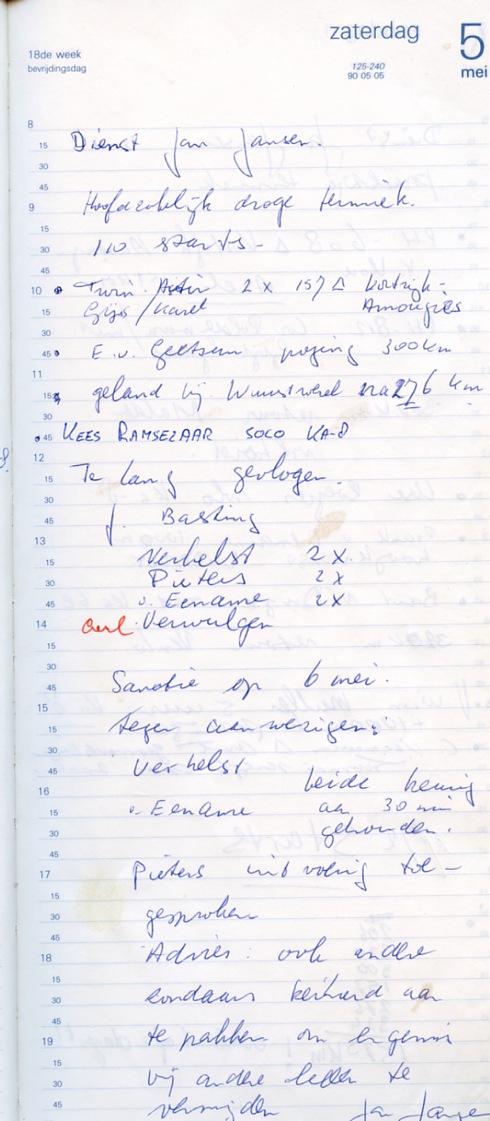 zaterdag 5
18de week
bevrijdingsdag
125-240
90 05 05
mei
8
15 Dienst Jan Jansen.
30
45
9 Hoofdzakelijk droge termiek.
15
30 110 starts-
45
10 Twin Astir 2 x 157 Δ Kortrijk-
15 Gijs/Karel Amougies
30
45 E.v. Geetsem poging 300 km
11
15 geland bij Wuustwezel na 276 km
30
45 KEES RAMSELAAR SOLO KA-8
12
15 Te lang gevlogen.
30
45 J. Basting
13
15 Verhelst 2 X.
30 Pieters 2 X
45 v. Eename 2 X
14 Verwulgen
15
30
45 Sanctie op 6 mei.
15
15 tegen aanwezigen:
30
45 Verhelst
16 beide
15 v. Eename aan 30 min
30 gehouden.
45
17 Pieters uitvoerig toe-
15
30 gesproken
45
18 Advies: ook andere
15
30 keihard aan
45
19 te pakken om ergernis
15
30 bij andere leden te
45 vermijden Jan Janse